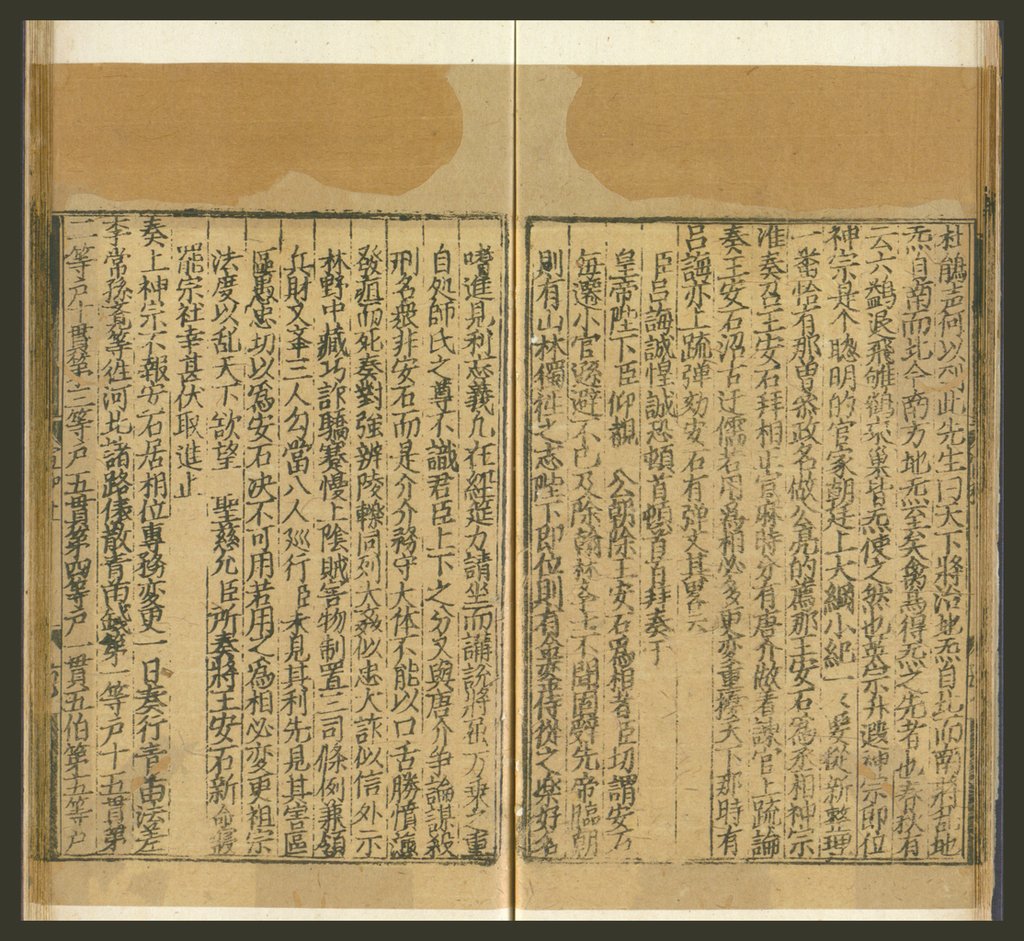 杜鵑声何以到此先生曰天下將治地炁自北而南將乱地
炁自南而北今南方地炁至矣禽鳥得炁之先者也春秋有
云六鷁退飛鸲鵒來巢皆炁使之然也英宗升遐神宗即位
神宗是个聰明的官家朝廷上大綱小紀一〻要從新整理
一番恰有那曾參政名做公亮的薦那王安石為丞相神宗
准奏召王安石拜相止官麻時分有唐介做着諫官上疏論
奏王安石沼古迂儒若用為相必多更变重擾天下那時有
吕誨亦上疏弹劾安石有弹文其畧云
臣吕誨誠惶誠恐頓首頓首百拜奏于
皇帝陛下臣仰覩 公朝除王安石爲相者臣切謂安石
每遷小官遜避不已及除翰林学士不聞固辭先帝臨朝
則有山林獨徃之志陛下即位則有金銮侍從之樂好名
嗜進見利忘義凢在經筵力請坐而講說將屈万乘之重
自処師氏之尊不識君臣上下之分又與唐介争論謀殺
刑名衆非安石而是介介務守大体不能以口舌勝憤懣
發疽而死奏對強辨陵轢同列大姦似忠大詐似信外示
林野中藏巧詐驕蹇慢上陰賊害物制置三司條例兼領
兵財又举三人勾當八人廵行臣未見其利先見其害區
區愚忠切以為安石决不可用若用之爲相必变更祖宗
法度以乱天下欲望 聖慈允臣所奏將王安石新命寢
罷宗社幸甚伏取進止
奏上神宗不報安石居相位專務变更一日奏行青苗法差
李常孫覺等徃河北諸路俵散青苗錢第一等户十五貫第
二等户十貫第三等户五貫第四等户一貫五伯第五等户